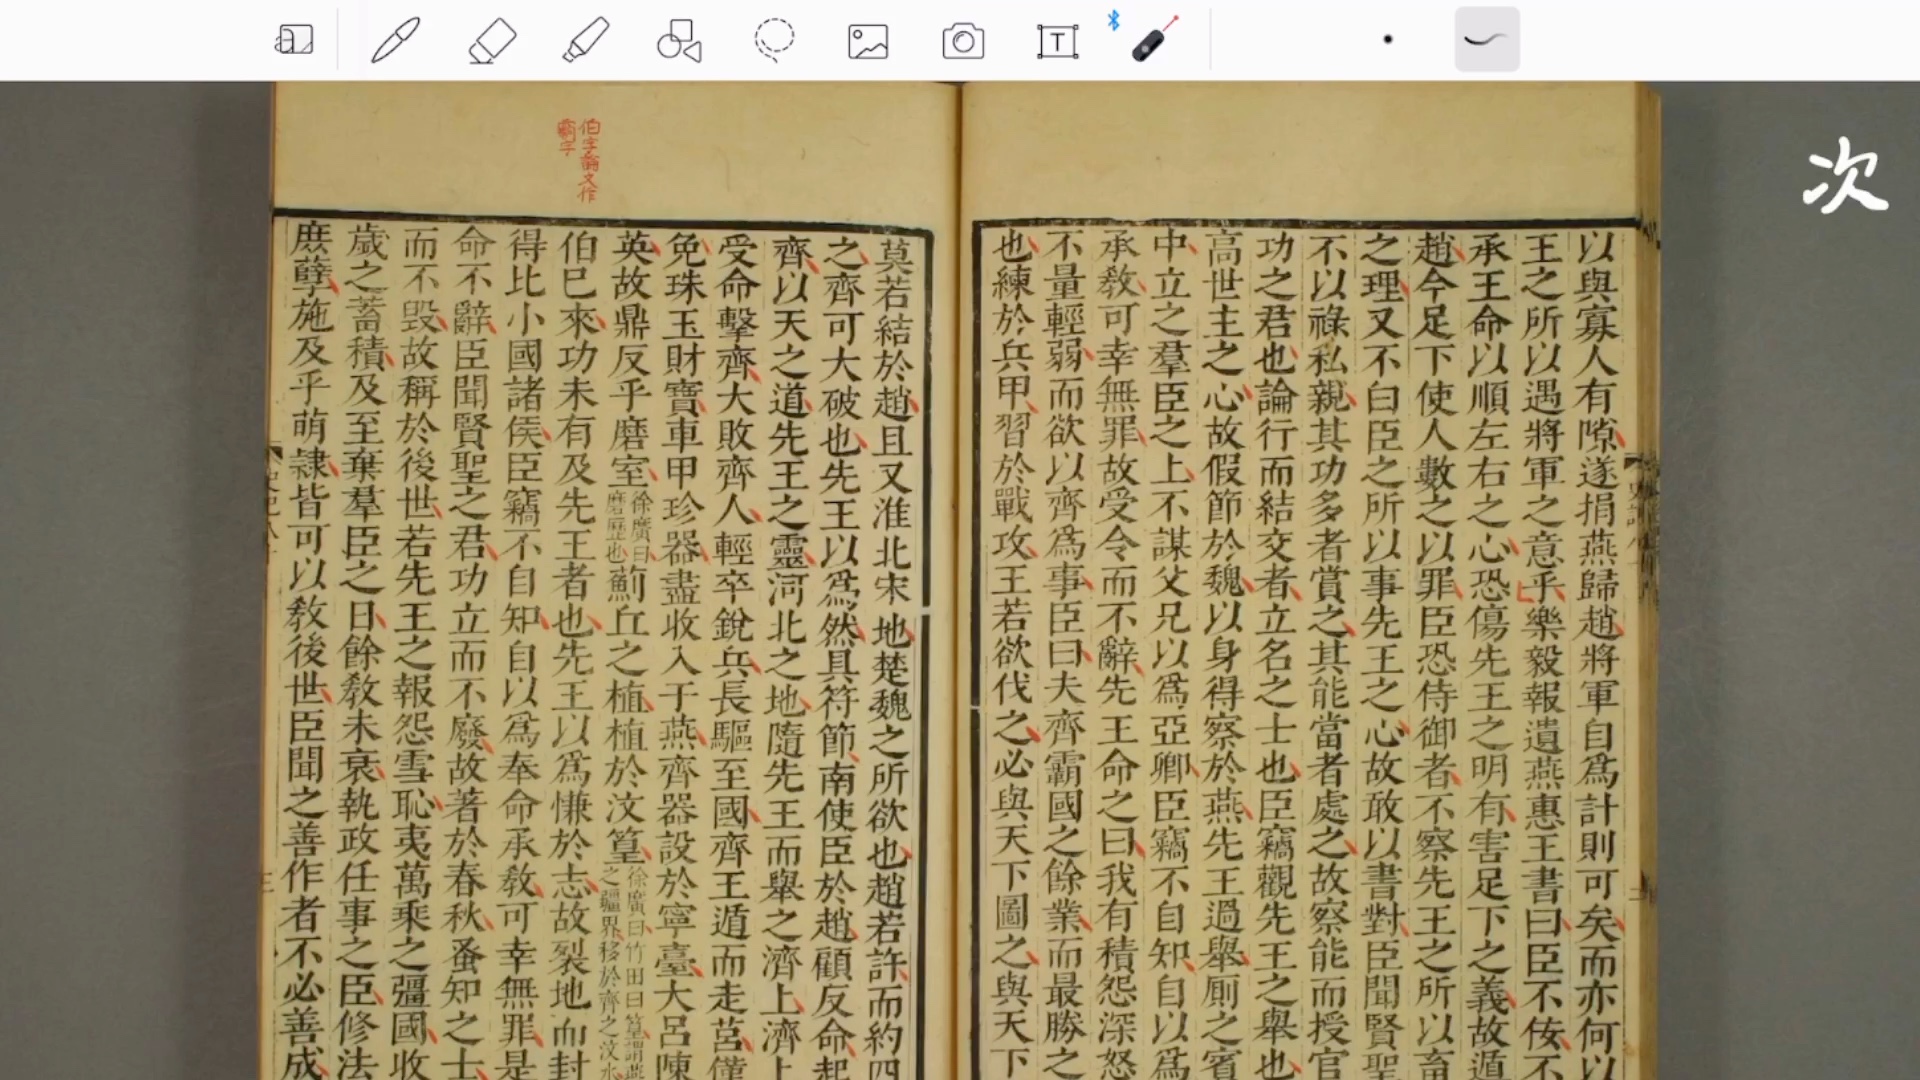 次
以與寡人有隙遂捐燕歸趙將軍自爲計則可矣而亦何以
王之所以遇將軍之意乎樂毅報遺燕惠王書曰臣不佞不
承王命以順左右之心恐傷先王之明有害足下之義故遁
趙今足下使人數之以罪臣恐侍御者不察先王之所以畜
之理又不白臣之所以事先王之心故敢以書對臣聞賢聖
不以祿私親其功多者賞之其能當者處之故察能而授官
功之君也論行而結交者立名之士也臣竊觀先王之舉也
高世主之心故假節於魏以身得察於燕先王過舉厠之賓
中立之羣臣之上不謀父兄以爲亞卿臣竊不自知自以爲
承教可幸無罪故受令而不辭先王命之曰我有積怨深怒
不量輕弱而欲以齊爲事臣曰夫齊霸國之餘業而最勝之
也練於兵甲習於戰攻王若欲伐之必與天下圖之與天下
莫若結於趙且又淮北宋地楚魏之所欲也趙若許而約四
之齊可大破也先王以爲然具符節南使臣於趙顧反命起
齊以天之道先王之靈河北之地隨先王而舉之濟上濟上
受命擊齊大敗齊人輕卒銳兵長驅至國齊王遁而走莒僅
免珠玉財寶車甲珍器盡收入于燕齊器設於寧臺大呂陳
英故鼎反乎磨室徐廣曰磨歷也薊丘之植植於汶篁徐廣曰竹田曰篁謂燕之疆界移於齊之汶水
伯巳來功未有及先王者也先王以爲慊於志故裂地而封
得比小國諸侯臣竊不自知自以爲奉命承教可幸無罪是
命不辭臣聞賢聖之君功立而不廢故著於春秋蚤知之士
而不毀故稱於後世若先王之報怨雪恥夷萬乘之彊國收
歲之蓄積及至棄羣臣之日餘教未衰執政任事之臣修法
庶孽施及乎萌隸皆可以教後世臣聞之善作者不必善成
伯字論文作
霸字